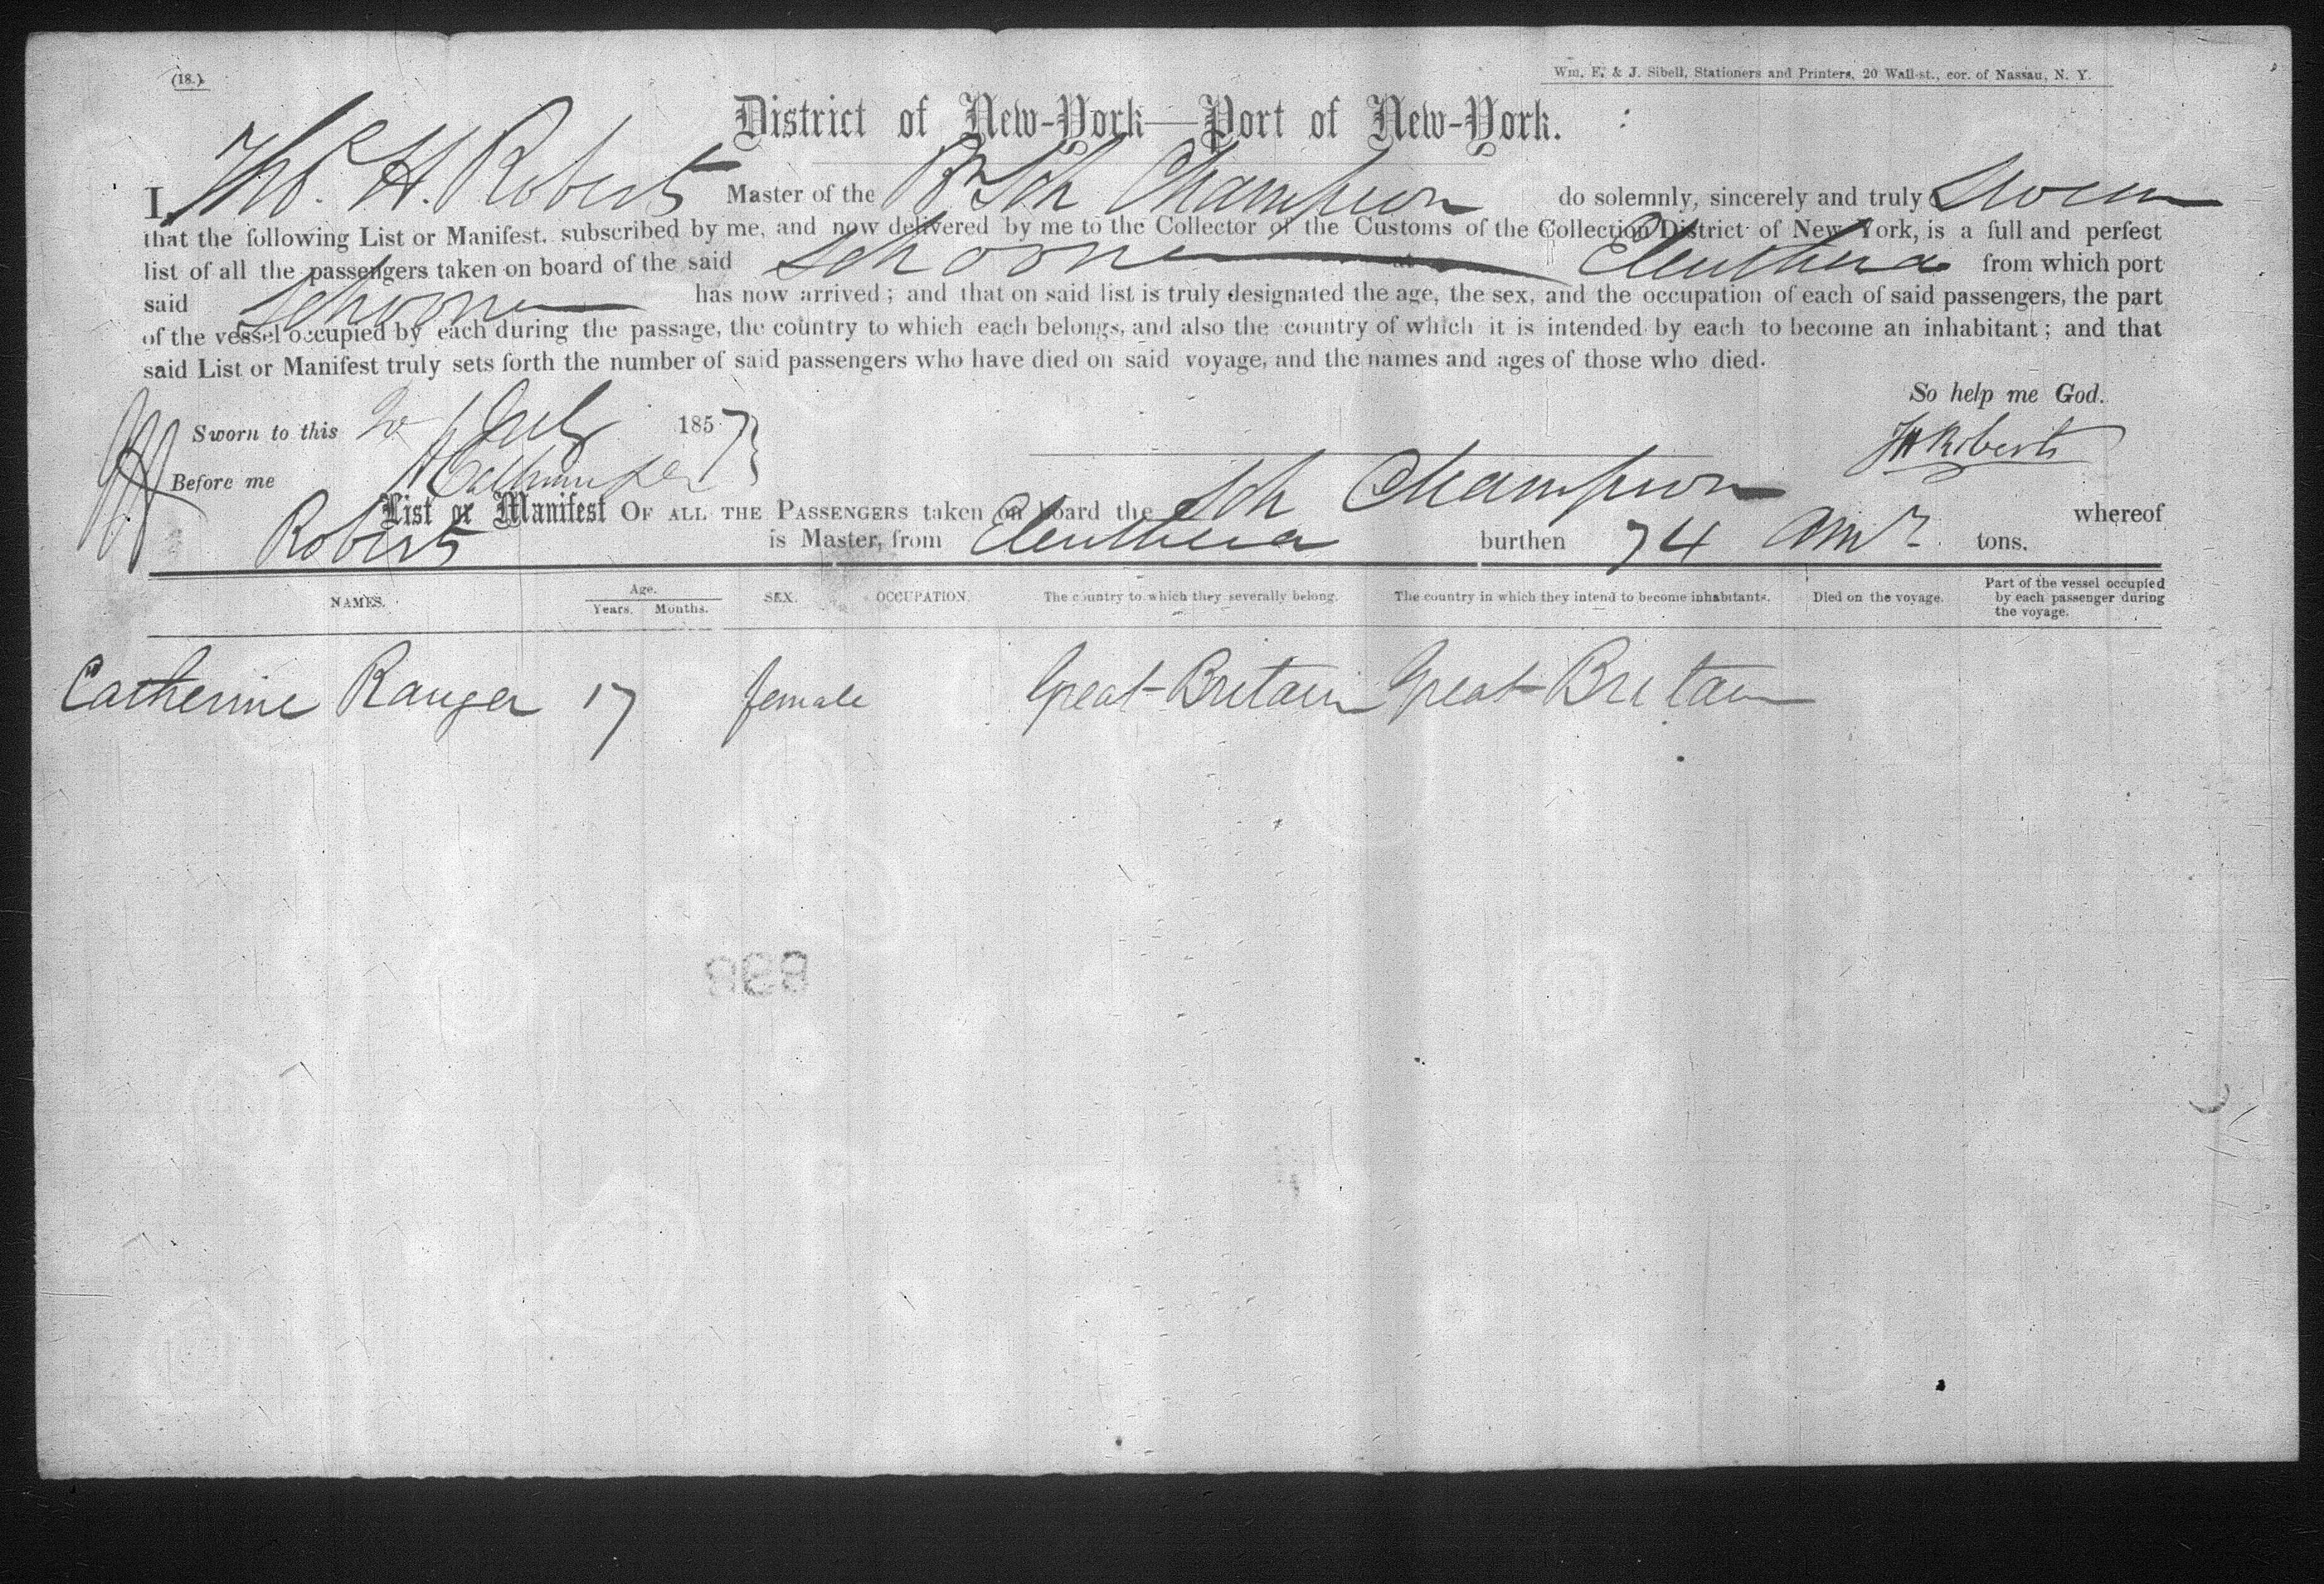 (18.)
Wm. E. & J. Sibell, Stationers and Printers, 20 Wall-st., cor. of Nassau, N. Y.
District of New-York—Port of New-York.
I, Thos. H. Roberts Master of the Br Sch Champion do solemnly, sincerely and truly Swear
that the following List or Manifest, subscribed by me, and now delivered by me to the Collector of the Customs of the Collection District of New York, is a full and perfect
list of all the passengers taken on board of the said Schooner at Eleuthera from which port
said Schooner has now arrived; and that on said list is truly designated the age, the sex, and the occupation of each of said passengers, the part
of the vessel occupied by each during the passage, the country to which each belongs, and also the country of which it is intended by each to become an inhabitant; and that
said List or Manifest truly sets forth the number of said passengers who have died on said voyage, and the names and ages of those who died.
So help me God.
Sworn to this July 1857
TH Roberts
Before me
List or Manifest OF ALL THE PASSENGERS taken on board the Sch Champion whereof
Roberts is Master, from Eleuthera burthen 74 tons.
NAMES. Age. Years. Months. SEX. OCCUPATION. The country to which they severally belong. The country in which they intend to become inhabitants. Died on the voyage. Part of the vessel occupied by each passenger during the voyage.
Catherine Ranger 17 female Great Britain Great Britain